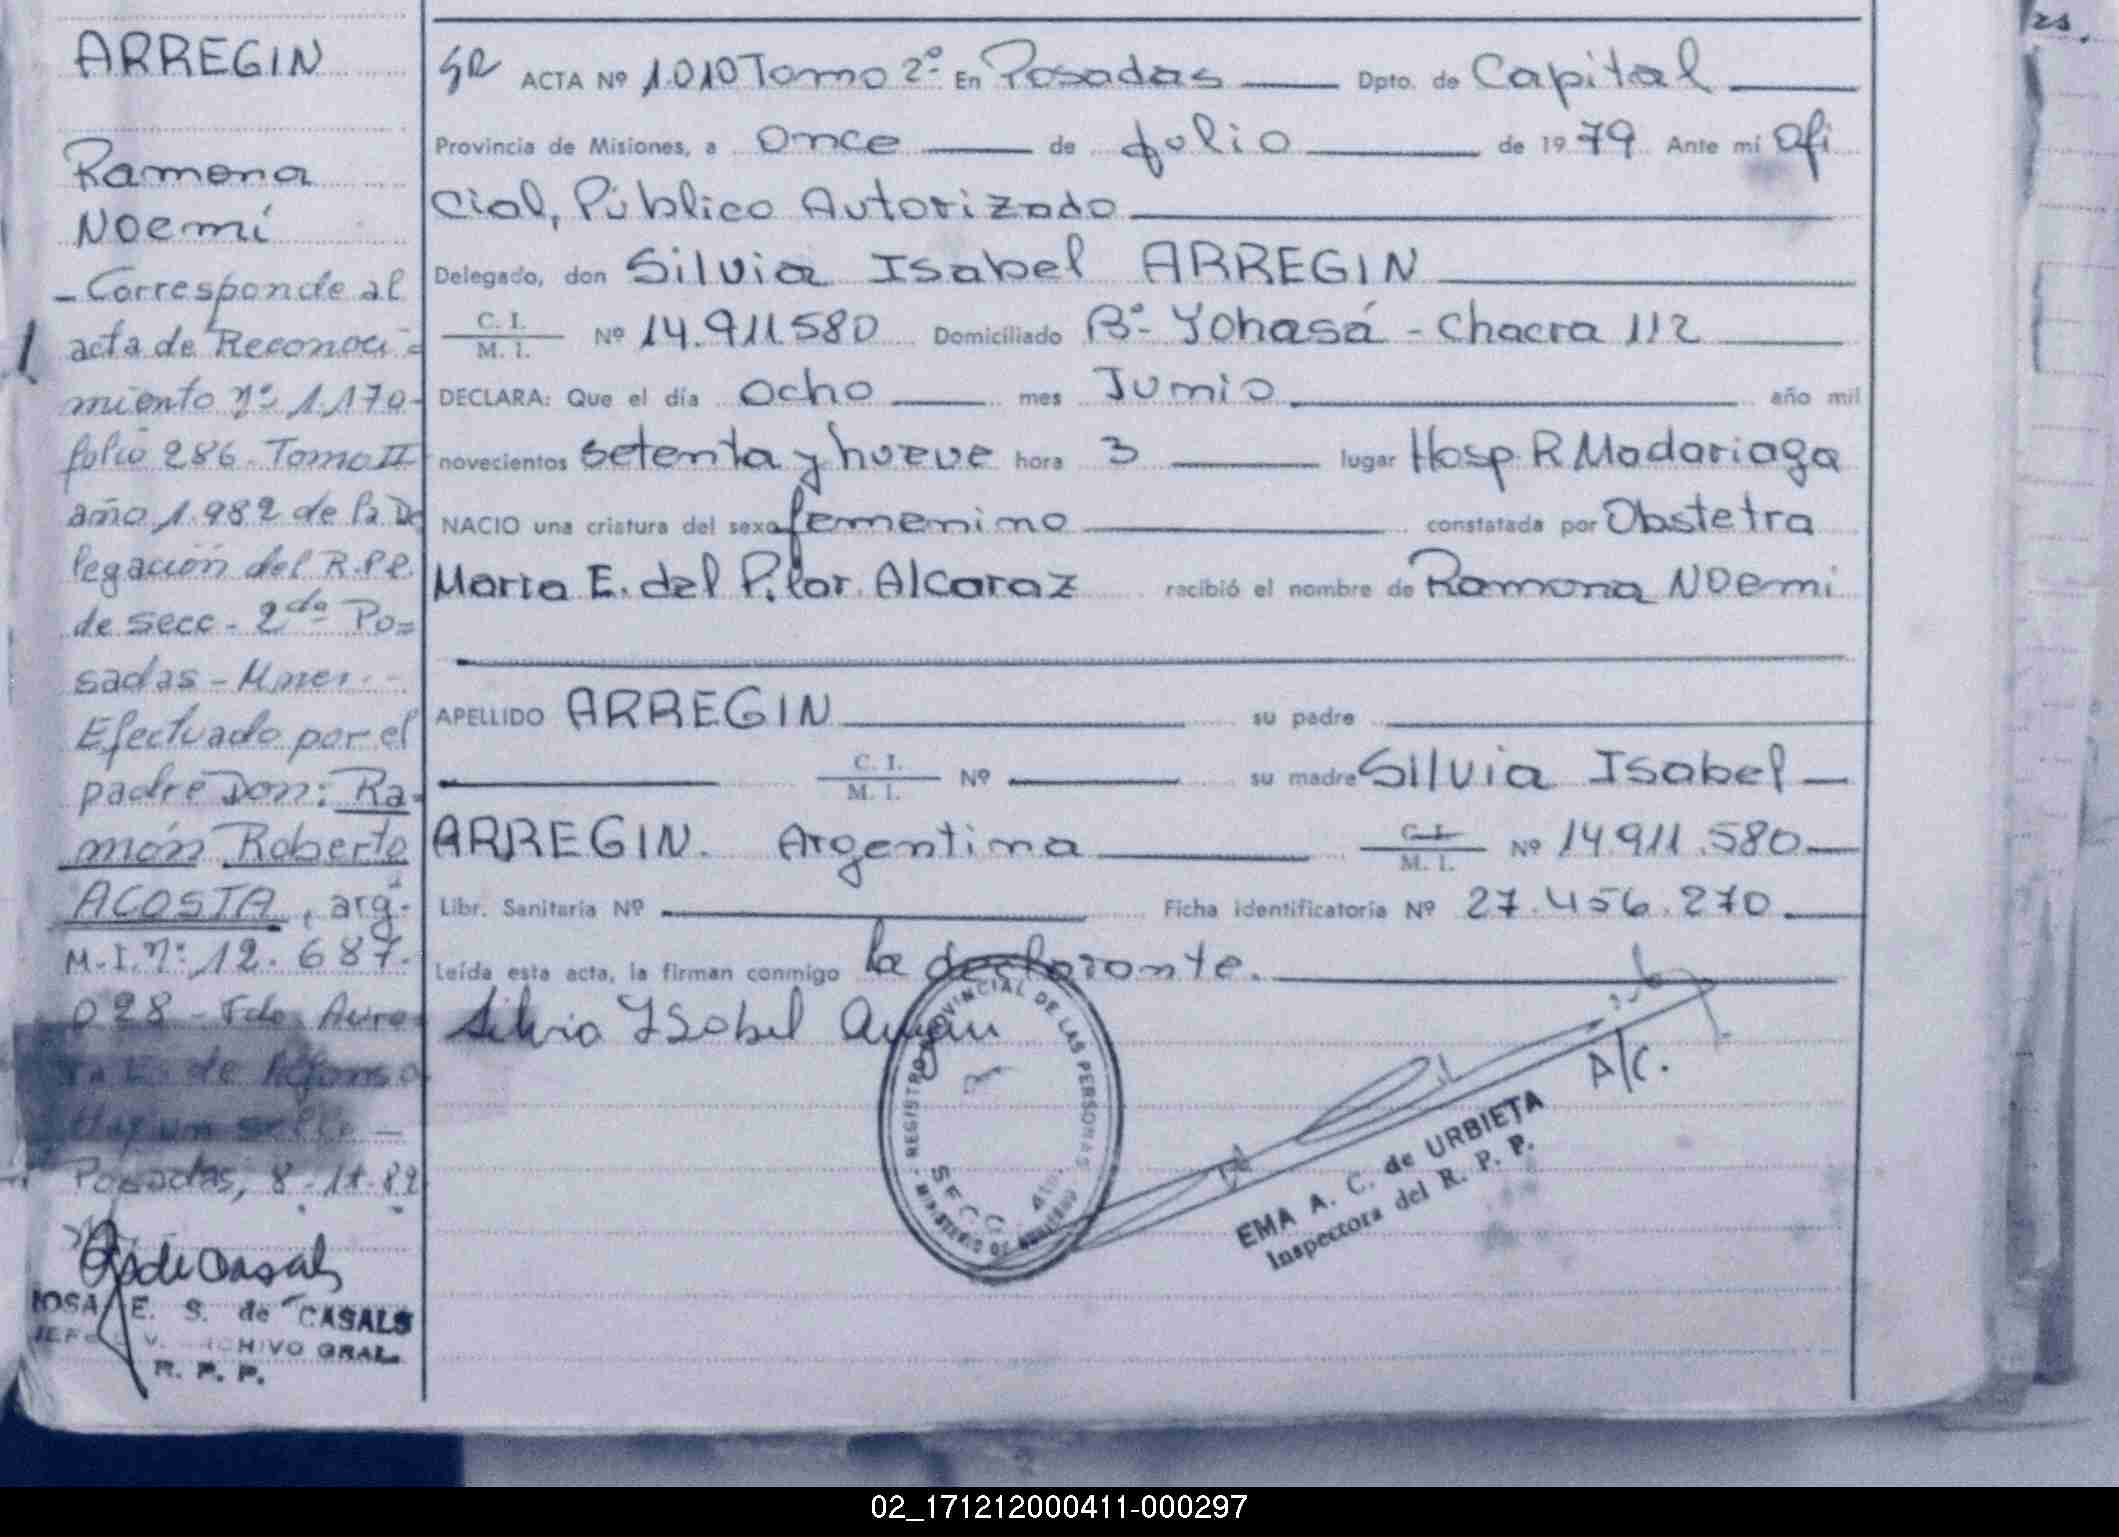 ARREGIN
Ramona
Noemí
- Corresponde al
acta de Reconoci=
miento nº 1.170-
folio 286. Tomo II
año 1.982 de la De
legación del R.P.P.
de secc - 2da Po=
sadas - Mnes. -
Efectuado por el
padre Don: Ra-
món Roberto
ACOSTA, arg.
M.I. nº: 12.687.
028 - Fdo. Aure
de Alfonso
Hay un sello -
Posadas, 8-11-82
E. S. de CASALS
R. P. P.
ACTA Nº 1.010 Tomo 2º En Posadas Dpto. de Capital
Provincia de Misiones, a once de Julio de 1979 Ante mí Ofi
cial, Público Autorizado
Delegado, don Silvia Isabel ARREGIN
C. I. M. I. Nº 14.911.580 Domiciliado Bº- Yohasá - Chacra 112
DECLARA: Que el día ocho mes Junio año mil
novecientos setenta y nueve hora 3 lugar Hosp. R Madariaga
NACIO una criatura del sexo femenino constatada por Obstetra
María E. del Pilar Alcaraz recibió el nombre de Ramona Noemi
APELLIDO ARREGIN su padre
C. I. M. I. Nº su madre Silvia Isabel
ARREGIN. Argentina C. I. M. I. Nº 14.911.580
Libr. Sanitaria Nº Ficha identificatoria Nº 27.456.270
Leída esta acta, la firman conmigo la declarante.
Silvia Isabel
REGISTRO PROVINCIAL DE LAS PERSONAS
MINISTERIO DE GOBIERNO
SECC. 4ta.
A/C.
EMA A. C. de URBIETA
Inspectora del R. P. P.
02_171212000411-000297